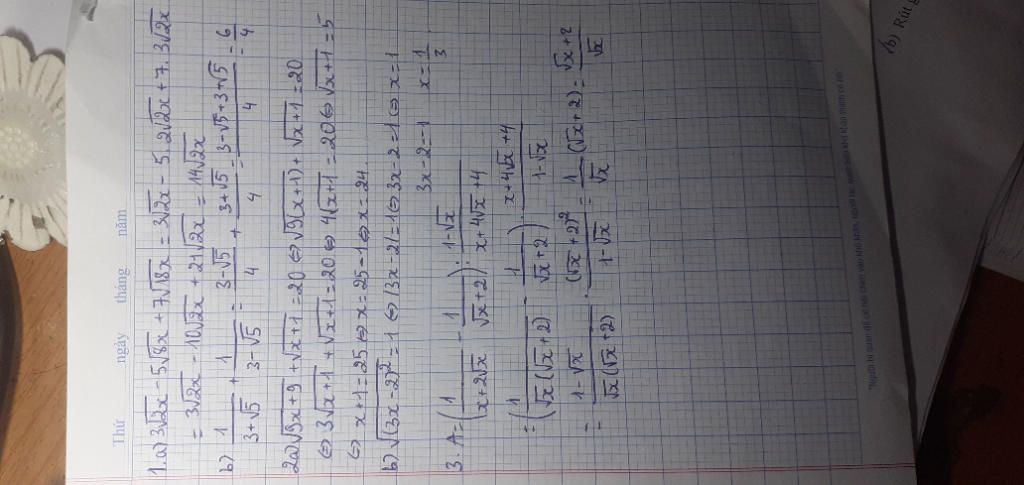 Thứ ngày tháng năm
1. a) 3√2x - 5√8x + 7√18x = 3√2x - 5.2√2x + 7.3√2x
= 3√2x - 10√2x + 21√2x = 14√2x
b) 1/(3+√5) + 1/(3-√5) = (3-√5)/4 + (3+√5)/4 = (3-√5+3+√5)/4 = 6/4
2a) √9x+9 + √x+1 = 20 ⇔ √9(x+1) + √x+1 = 20
⇔ 3√x+1 + √x+1 = 20 ⇔ 4√x+1 = 20 ⇔ √x+1 = 5
⇔ x+1 = 25 ⇔ x = 25-1 ⇔ x = 24.
b) √(3x-2)² = 1 ⇔ |3x-2| = 1 ⇔ 3x-2 = 1 ⇔ x = 1
3x-2 = -1 x = 1/3
3. A = (1/(x+2√x) - 1/(√x+2)) : (1-√x)/(x+4√x+4)
= (1/(√x(√x+2)) - 1/(√x+2)) . (x+4√x+4)/(1-√x)
= (1-√x)/(√x(√x+2)) . (√x+2)²/(1-√x) = 1/√x (√x+2) = (√x+2)/√x
b) Rút g